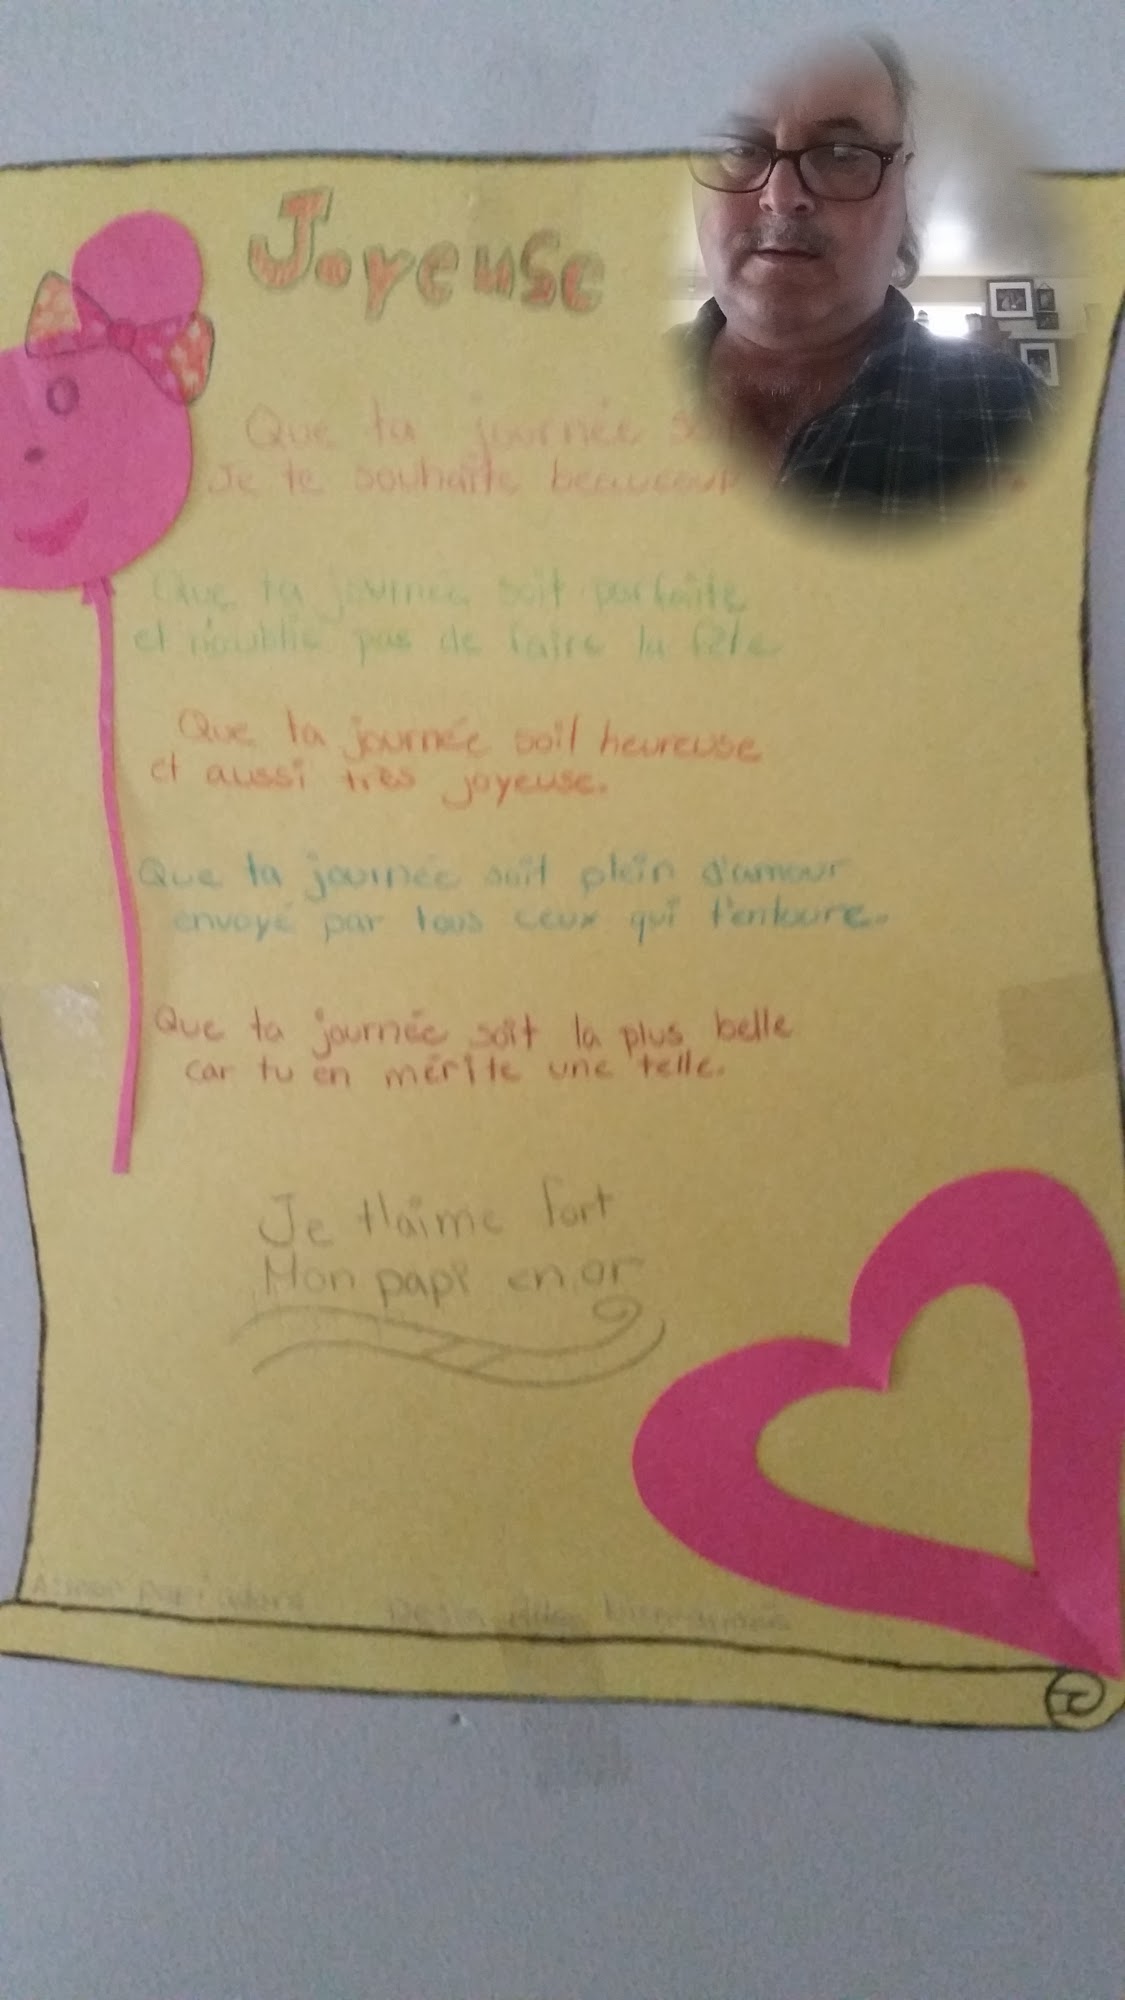 Joyeuse
Que ta journée
Je te souhaite beaucoup
Que ta journée soit parfaite
et n'oublie pas de faire la fête
Que ta journée soit heureuse
et aussi très joyeuse.
Que ta journée soit plein d'amour
envoyé par tous ceux qui t'entoure.
Que ta journée soit la plus belle
car tu en mérite une telle.
Je t'aime fort
Mon papi en or